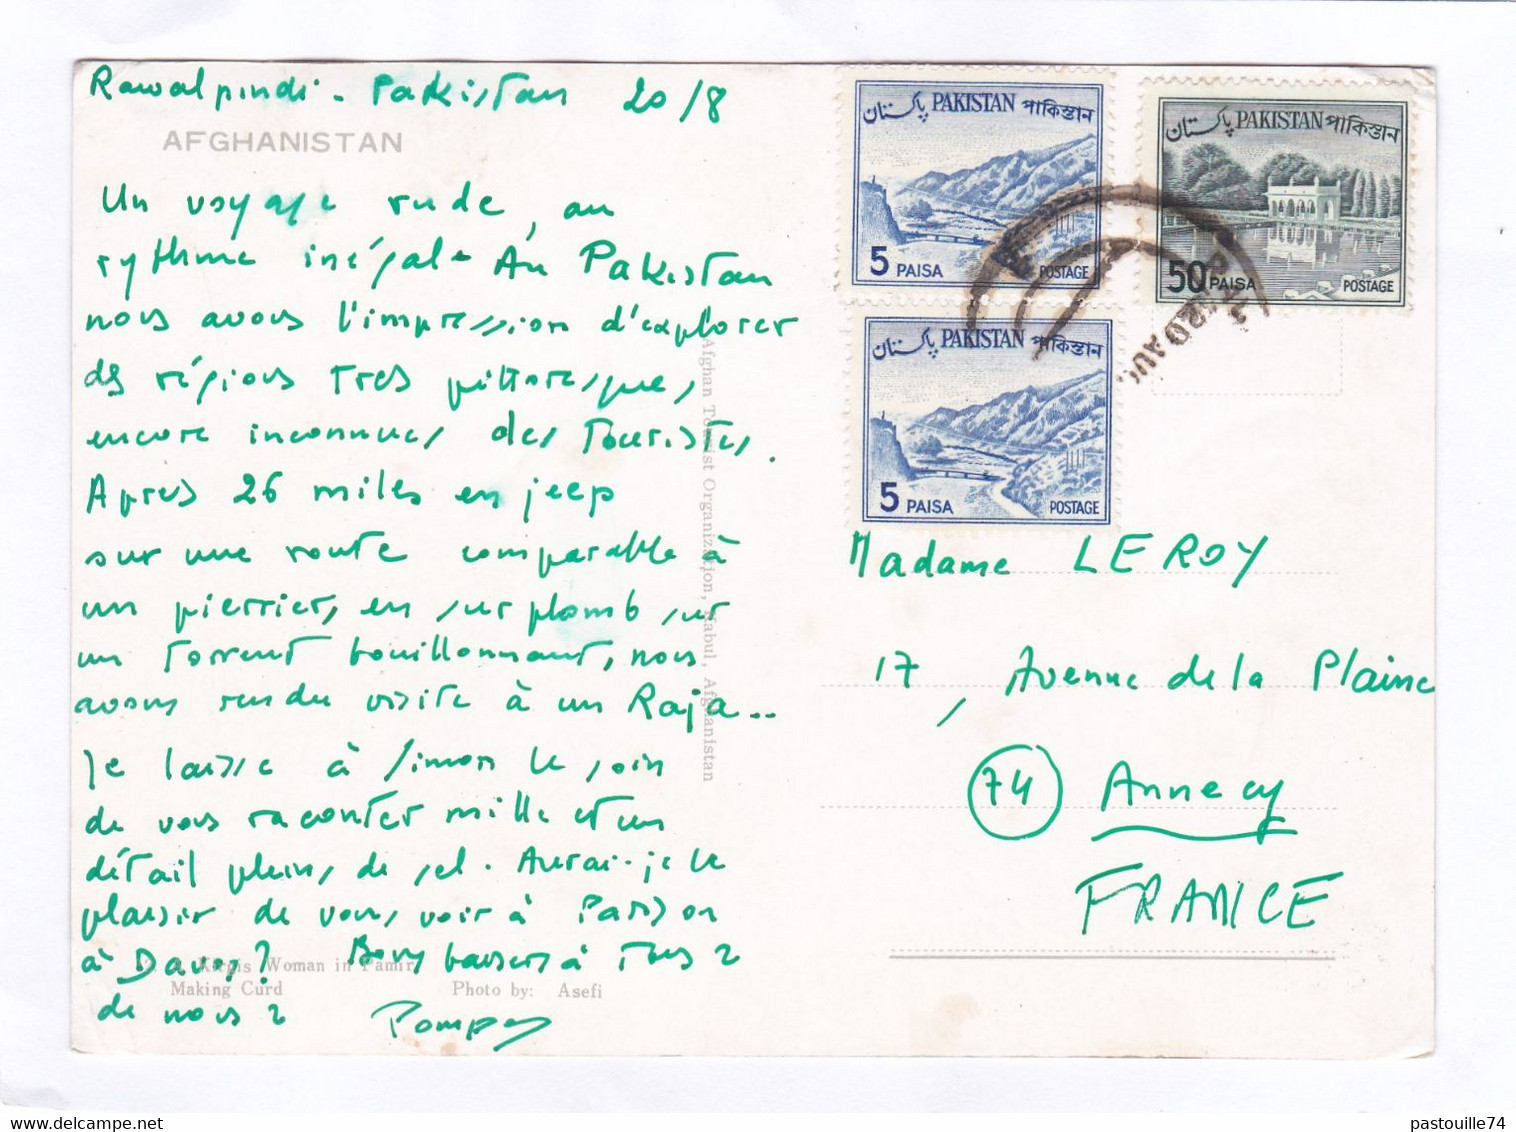 Rawalpindi - Pakistan 20/8
AFGHANISTAN
Un voyage rude, au
rythme inégal - Au Pakistan
nous avons l'impression d'explorer
des régions très pittoresques,
encore inconnues des touristes.
Après 26 miles en jeep
sur une route comparable à
un pierrier, en surplomb sur
un torrent bouillonnant, nous
avons rendu visite à un Raja..
Je laisse à Simon le soin
de vous raconter mille et un
détail pleins de sel. Aurai-je le
plaisir de vous voir à Paris on
à Davos? Bons baisers à tous 2
de nous 2
Kirgis Woman in Pamir
Making Curd Photo by: Asefi
Afghan Tourist Organization, Kabul, Afghanistan
پاکستان PAKISTAN পাকিস্তান
5 PAISA POSTAGE
پاکستان PAKISTAN পাকিস্তান
50 PAISA POSTAGE
پاکستان PAKISTAN পাকিস্তান
5 PAISA POSTAGE
Madame LEROY
17, Avenue de la Plaine
74 Annecy
FRANCE
pastouille74